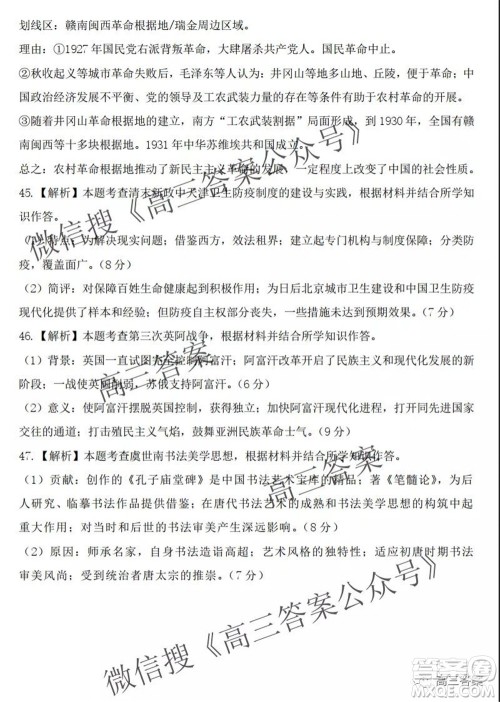 划线区：赣南闽西革命根据地/瑞金周边区域。
理由：①1927年国民党右派背叛革命，大肆屠杀共产党人。国民革命中止。
②秋收起义等城市革命失败后，毛泽东等人认为：井冈山等地多山地、丘陵，便于革命；中
国政治经济发展不平衡、党的领导及工农武装力量的存在等条件有助于农村革命的开展。
③随着井冈山革命根据地的建立，南方“工农武装割据”局面形成，到 1930 年，全国有
赣南闽西等十多块根据地。1931 年中华苏维埃共和国成立。
总之：农村革命根据地推动了新民主主义革命的发展，一定程度上改变了中国的社会性质。
45.【解析】本题考查清末新政中天津卫生防疫制度的建设与实践，根据材料并结合所学知
识作答。
（1）特点：为解决现实问题；借鉴西方，效法租界；建立起专门机构与制度保障；分类防
疫，覆盖面广。（8 分）
（2）简评：对保障百姓生命健康起到积极作用；为日后北京城市卫生建设和中国卫生防疫
现代化提供了样本和经验；但防疫自主权部分丧失，一些措施未达到预期效果。（7 分）
46.【解析】本题考查第三次英阿战争，根据材料并结合所学知识作答。
（1）背景：英国一直试图完全控制阿富汗；阿富汗改革开启了民族主义和现代化进程的新
阶段；一战使英国削弱，苏俄支持阿富汗。（6 分）
（2）意义：使阿富汗摆脱英国控制，获得独立；加快阿富汗现代化进程，打开与世界国家
交往的通道；打击殖民主义气焰，鼓舞亚洲民族革命士气。（9 分）
47.【解析】本题考查虞世南书法美学思想，根据材料并结合所学知识作答。
（1）贡献：创作的《孔子庙堂碑》是中国书法艺术宝库的精品；著《笔髓论》，为后
人研究、临摹书法作品提供借鉴；在唐代书法艺术的成熟和书法美学思想的构筑中起
重大作用；对当时和后世的书法审美产生深远影响。（8 分）
（2）原因：师承名家，自身书法造诣高超；艺术风格的独特性；适应初唐时期书法
审美风尚；受到统治者唐太宗的推崇。（7 分）
微信搜《高三答案公众号》
高三答案
高三答案
微信搜《高三答案公众号》
高三答案
答案圈
MXQE.COM